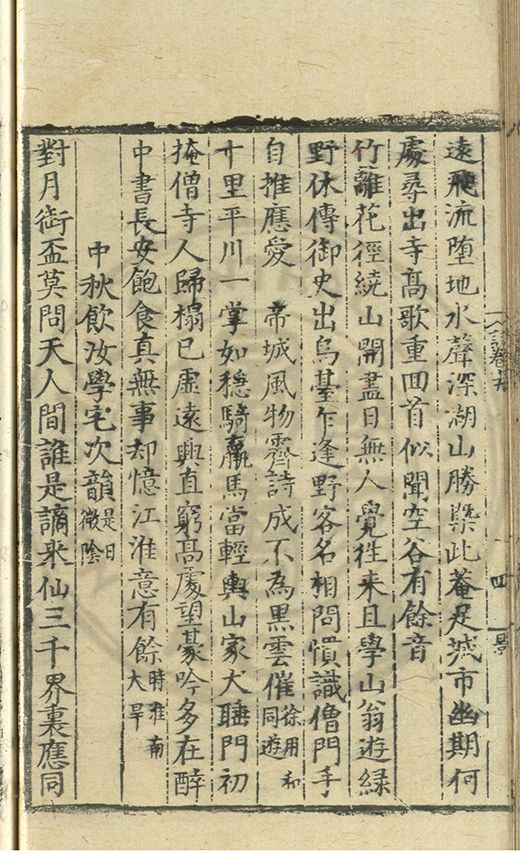 遠飛流堕地水聲深湖山勝槩此菴足城市幽期何
處尋出寺髙歌重回首似聞空谷有餘音
竹離花徑繞山開盡日無人覺徃来且學山翁遊緑
野休傳御史出烏䑓乍逢野客名相問慣識僧門手
自推應愛　帝城風物霽詩成不為黒雲催徐用和同遊
十里平川一掌如穏騎羸馬當輕輿山家犬睡門初
掩僧寺人歸榻已虚遠興直窮髙處望豪吟多在醉
中書長安飽食真無事却憶江淮意有餘時淮南大旱
中秋飲汝學宅次韻是日微陰
對月銜盃莫問天人間誰是謫来仙三千界裏應同
詩卷
四